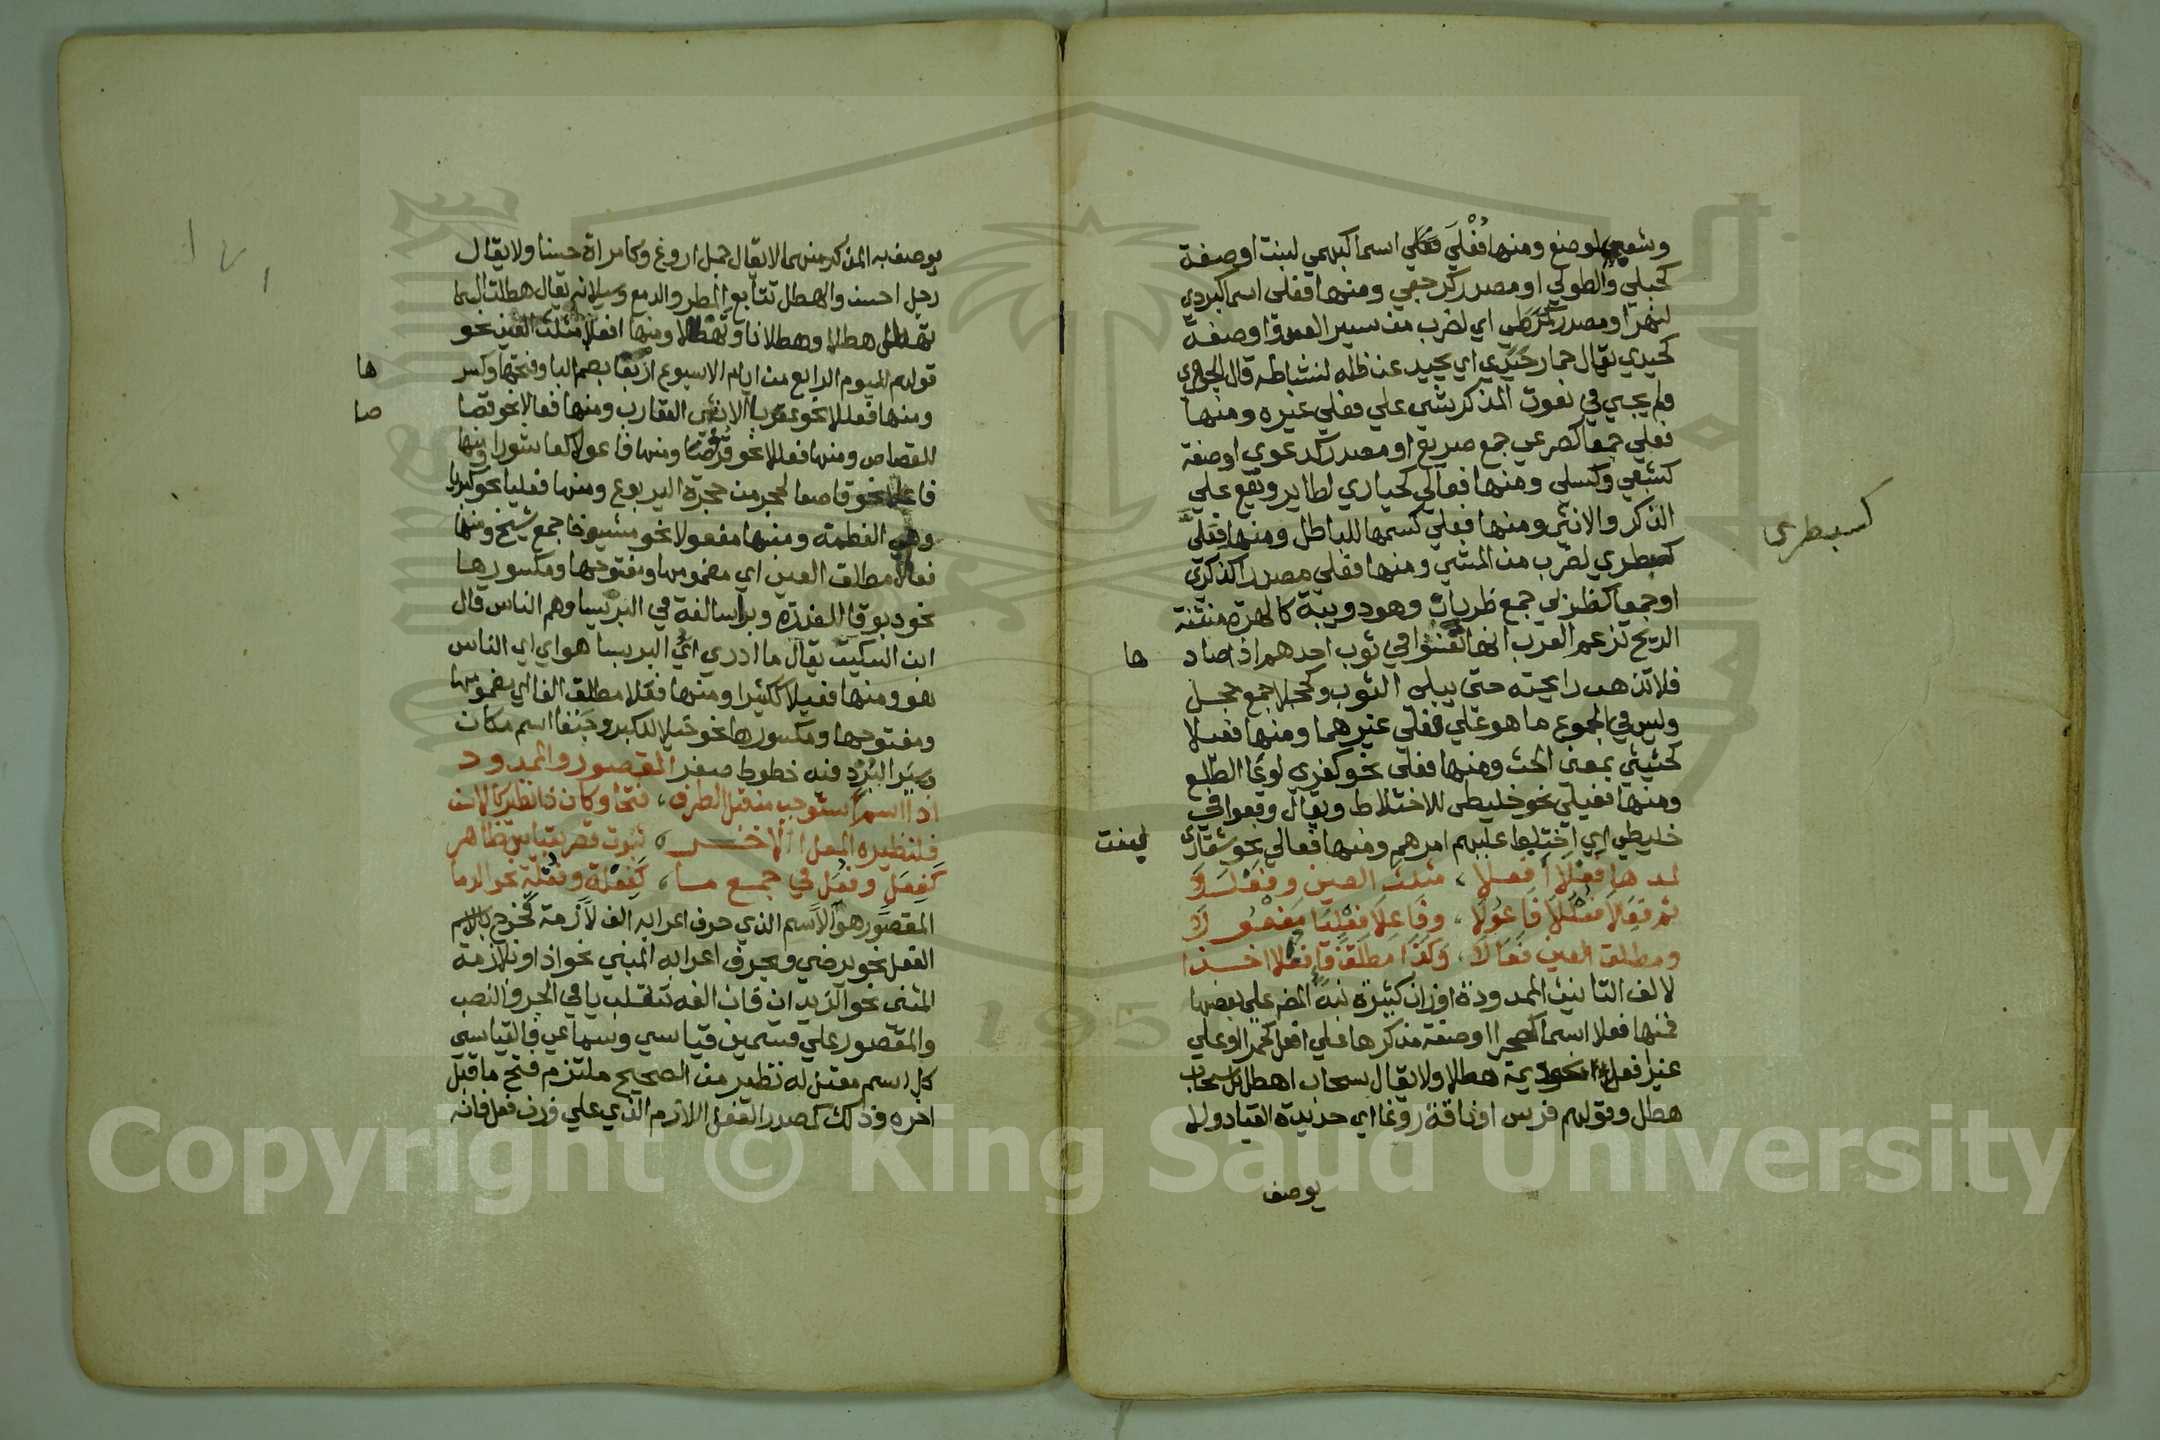 وشعبى لموضع ومنها فُعْلَي فعلي اسما كبهمي لبنت اوصفة
كحبلي والطولي او مصدر كرجعي ومنها فعلي اسما كبردي
لنهر او مصدر كمرطي اي لضرب من سير العدو اوصفة
كحيدي يقال حمار حيدي اي يحيد عن ظله لنشاطه قال الجوهري
ولم يجي في نعوت المذكر شي علي فعلي غيره ومنها
فعلي جمعا كصرعي جمع صريع او مصدر كدعوي اوصفة
كشبعي وكسلي ومنها فعالي كحباري لطاير ويقع علي
الذكر والانثي ومنها فعلي كسمهي للباطل ومنها فعلي
كسبطري لضرب من المشي ومنها فعلي مصدرا كذكري
كسبطري
او جمعا كظربي جمع ظربان وهو دويبة كالهرة منتنة
الريح تزعم العرب انها تفسو في ثوب احدهم اذا صاد
ها
فلا تذهب رايحته حتي يبلي الثوب وكحجلي جمع حجل
وليس في الجموع ما هو علي فعلي غيرهما ومنها فعيلا
كحثيثي بمعني الحث ومنها فعلي نحو كفري لوعا الطلع
ومنها فعيلي نحو خليطي للاختلاط ويقال وقعوا في
خليطي اي اختلط عليهم امرهم ومنها فعالي نحو شقاري
لنبت
لمدها فَعْلَا أَفعلا، مثلث العين وفَعْلَلَا
ثم فِعَالَا فُعْلُلَا فَاعُولَا، وفَاعِلَا فِعْلِيَا مَفعولا
ومطلق العين فَعَالَا، وكذا مطلق فا فعلا اخذا
لالف التانيث الممدودة اوزان كثيرة نبه المص علي بعضها
فمنها فعلا اسما كصحرا اوصفة مذكرها علي افعل كحمرا وعلي
غير افعل نحو ديمة هطلا ولا يقال سحاب اهطل بل سحاب
هطل وقولهم فرس او ناقة روغا اي حديدة القياد ولا
يوصف
يوصف به المذكر منهما لا يقال جمل اروغ وكامراة حسنا ولا يقال
رجل احسن والهطل تتابع المطر والدمع وسيلانه يقال هطلت السما
تهطل هطلا وهطلانا وتهطالا ومنها افعلا مثلث العين نحو
قولهم لليوم الرابع من ايام الاسبوع اربعا بضم البا وفتحها وكسر
ها
ومنها فعللا نحو عقربا لانثي العقارب ومنها فعالا نحو قصا
صا
للقصاص ومنها فعللا نحو قرفصا ومنها فاعولا كعاشورا ومنها
فاعلا نحو قاصعا لحجر من حجرة اليربوع ومنها فعليا نحو كبريا
وهي العظمة ومنها مفعولا نحو مشيوخا جمع شيخ ومنها
فعالا مطلق العين اي مضمومها ومفتوحها ومكسورها
نحو دبوقا للعذرة وبراسا لغة في البرنسا وهم الناس قال
ابن السكيت يقال ما ادري اي البرنسا هو اي اي الناس
هو ومنها فعيلا ككثيرا ومنها فعلا مطلق الفا اي مضمومها
ومفتوحها ومكسورها نحو خيلا للكبر وجنفا اسم مكان
وسيرا لبرد فيه خطوط صفر المقصور والممدود
اذا اسم استوجب من قبل الطرف، فتحا وكان ذا نظير كالاسف
فلنظيره المعل الاخر، ثبوت قصر بقياس ظاهر
كَفِعَل وفُعَل في جمع ما، كَفِعْلَة وفُعْلَة نحو الدما
المقصور هو الاسم الذي حرف اعرابه الف لازمة فخرج بالاسم
الفعل نحو يرضي وبحرف اعرابه المبني نحو اذا وبلازمة
المثني نحو الزيدان فان الفه تنقلب يا في الجر والنصب
والمقصور علي قسمين قياسي وسماعي فالقياسي
كل اسم معتل له نظير من الصحيح ملتزم فتح ما قبل
اخره وذلك كمصدر الفعل اللازم الذي علي وزن فعل فانه
Copyright © King Saud University
195